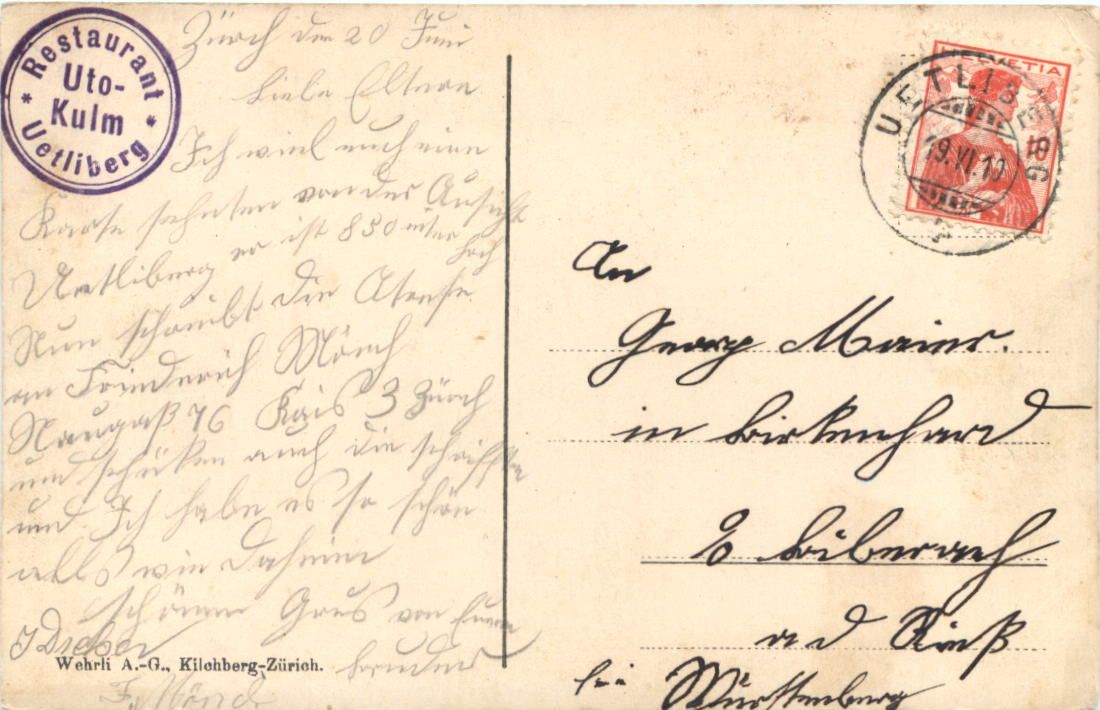 Restaurant
Uto-
Kulm
Uetliberg
Zürch den 20 Juni
Liebe Eltern
Ich will euch eine
Karte von der Aussicht
Uetliberg er ist 850 meter
hoch
Nun schreibt die Atresse
an Friederich Mönch
Naugaß 76 Kais 3 Zürch
und schüken auch die schriften
und Ich habe es so schön
alls wie Daheim
schönen Grus von Euren
bruder
F. Mönch
Wehrli A.-G., Kilchberg-Zürich.
HELVETIA
10
UETLIBERG
19.VI.10
An
Georg Maier.
in Birkenhard
Biberach
a d Riß
Württenberg